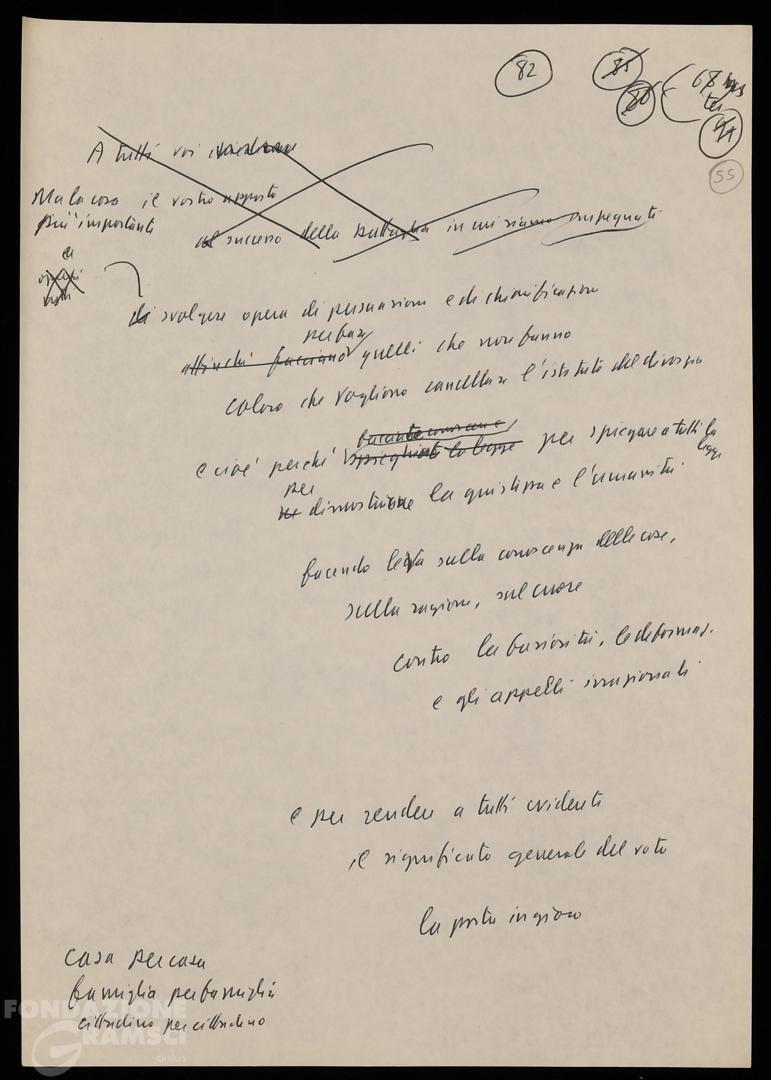 82 85 68
86
44
55
A tutti voi
Ma la cosa il vostro apporto
più importante
al successo della battaglia in cui siamo impegnati
di svolgere opera di persuasione e di chiarificazione
affinché facciano quelli che non fanno
coloro che vogliono cancellare l'istituto del divorzio
e cioè perché spieghiate la legge per spiegare a tutti la
legge
per
dimostrare la giustizia e l'umanità
facendo leva sulla conoscenza delle cose,
sulla ragione, sul cuore
contro la faziosità, le deformaz.
e gli appelli irrazionali
e per rendere a tutti evidente
il significato generale del voto
la posta in gioco
casa per casa
famiglia per famiglia
cittadino per cittadino
FONDAZIONE
GRAMSCI
onlus